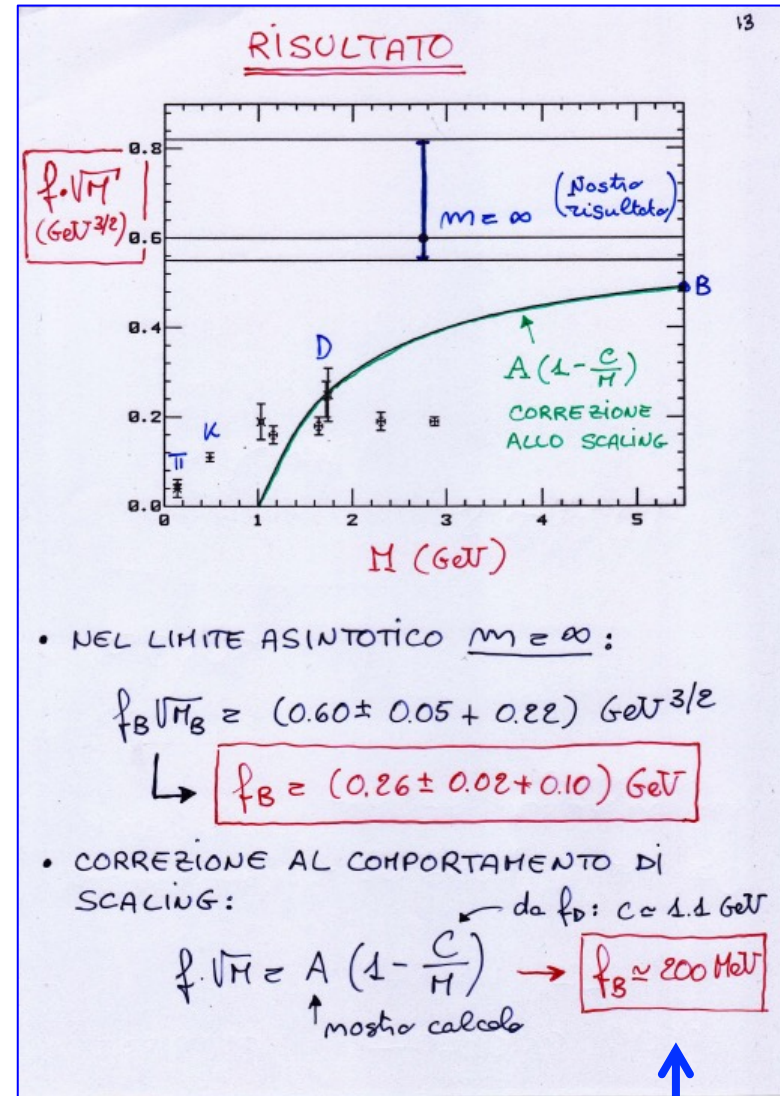 13
RISULTATO
f·√M
(GeV 3/2)
0.8
0.6
0.4
0.2
0.0
m = ∞ (Nostro risultato)
B
D
K
π
A(1-C/M)
CORREZIONE
ALLO SCALING
0 1 2 3 4 5
M (GeV)
• NEL LIMITE ASINTOTICO m = ∞ :
f_B √M_B = (0.60 ± 0.05 + 0.22) GeV 3/2
↳ f_B = (0.26 ± 0.02 + 0.10) GeV
• CORREZIONE AL COMPORTAMENTO DI
SCALING:
da f_D: C ≃ 1.1 GeV
f·√M = A (1 - C/M) → f_B ≃ 200 MeV
nostro calcolo